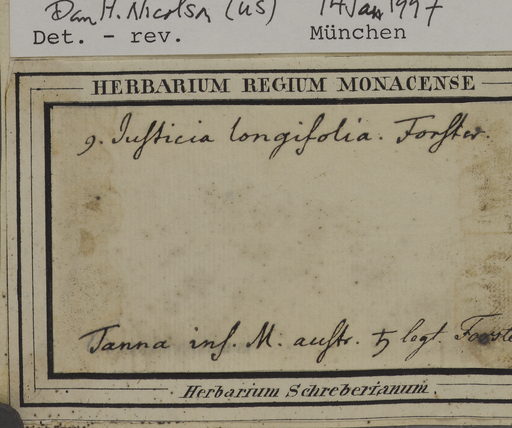 Dan H. Nicolson (US) 14 Jan 1997
Det. - rev. München
HERBARIUM REGIUM MONACENSE
9. Justicia longifolia. Forster.
Tanna ins. M. austr. ♄ legt. Forste
Herbarium Schreberianum.